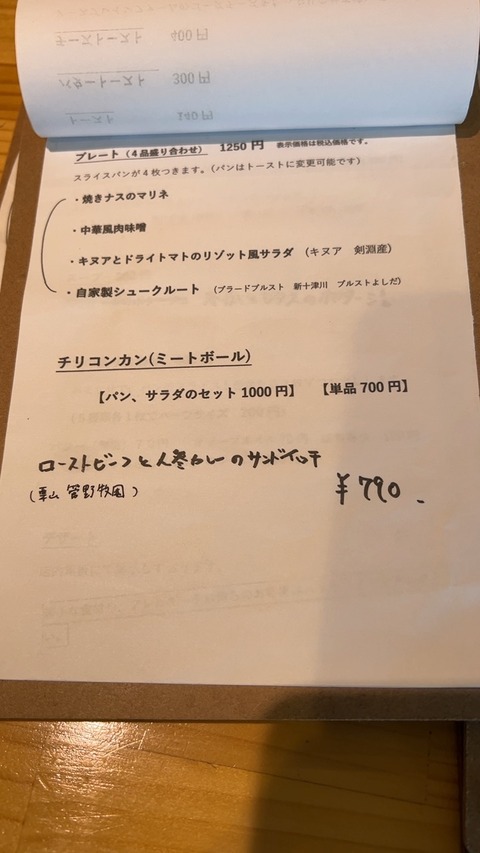 チーズトースト 400円
バタートースト 300円
トースト 140円
プレート（４品盛り合わせ） 1250 円 表示価格は税込価格です。
スライスパンが４枚つきます。（パンはトーストに変更可能です）
・焼きナスのマリネ
・中華風肉味噌
・キヌアとドライトマトのリゾット風サラダ （キヌア 剣淵産）
・自家製シュークルート （ブラードブルスト 新十津川 ブルストよしだ）
チリコンカン(ミートボール)
【パン、サラダのセット 1000 円】 【単品 700 円】
ローストビーフと人参カレーのサンドイッチ
（栗山 菅野牧園）
￥790-
デザート